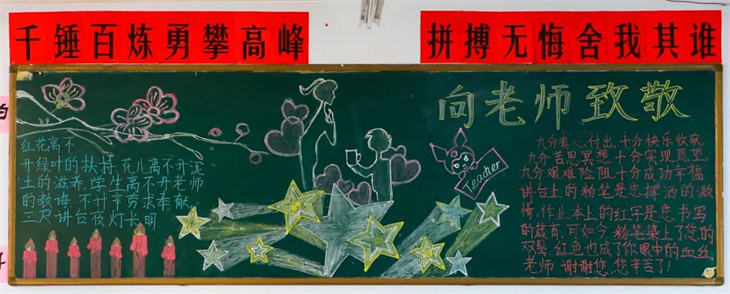 千锤百炼勇攀高峰
拼搏无悔舍我其谁
向老师致敬
红花离不
开绿叶的扶持,花儿离不开泥
土的滋养,学生离不开老师
的教诲,不开辛劳求奉献,
三尺讲台夜灯长明
Teacher
九分真心,付出,十分快乐收获,
九分苦思冥想,十分实现愿望
九分艰难险阻,十分成功幸福
讲台上的粉笔是您挥洒的激
情,作业本上的红字是您书写
的篇章,可如今粉笔染上了您的
双鬓,红色也成了你眼中的血丝,
老师 谢谢您,您辛苦了!